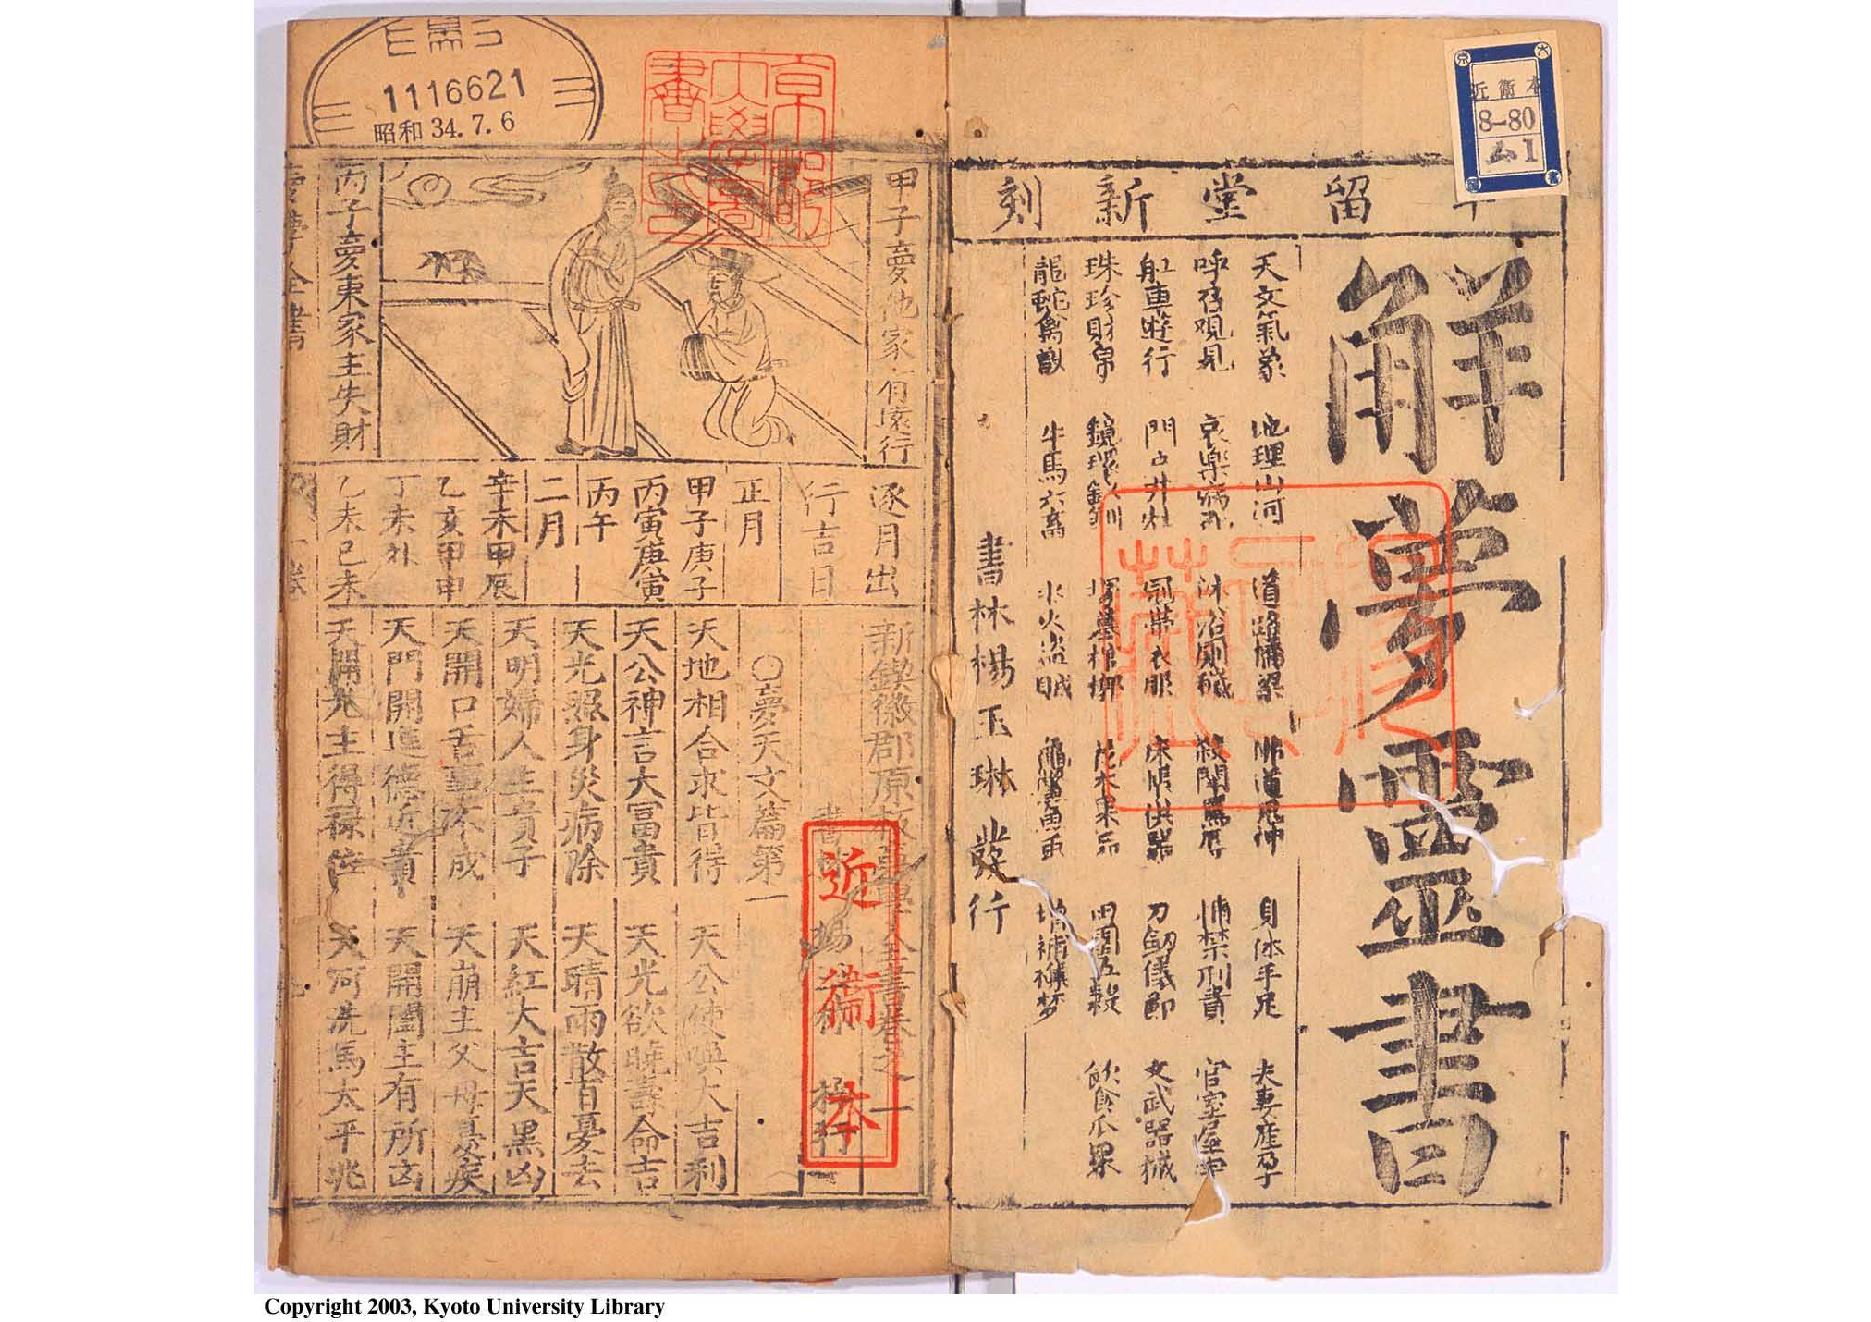 近衛本
8-80
ム1
留堂新刻
解夢靈書
天文氣象 地理山河 道路橋梁 佛道鬼神 身体手足 夫妻產孕
呼召覌見 哀樂病死 沐浴厠穢 殺鬪罵辱 捕禁刑責 官室屋宇
舡車遊行 門戸井灶 冠帶衣服 床帳供器 刀劒儀節 文武器械
珠珍財帛 鏡環釵釧 塚墓棺槨 花木果品 田園五穀 飲食瓜菓
龍蛇禽獸 牛馬六畜 水火盜賊 龜鱉魚 增補襍梦
書林楊玉琳發行
1116621
昭和34.7.6
京都帝國大學圖書之印
甲子夣他家有遠行
丙子夣東家主失財
逐月出
行吉日
正月
甲子庚子
丙寅庚寅
丙午
二月
辛未甲辰
乙亥甲申
丁未外
乙未己未
新鍥徽郡原板夢學全書卷之一
書 楊 梓行
近衛本
○夣天文篇第一
天地相合求皆得 天公使喚大吉利
天公神言大冨貴 天光欲曉壽命吉
天光照身災病除 天晴雨散百憂去
天明婦人生貴子 天紅大吉天黑凶
天開口舌事不成 天崩主父母憂疾
天門開進德近貴 天開闔主有所凶
天開光主得祿位 天河洗馬太平兆
夢學全書
一卷
Copyright 2003, Kyoto University Library